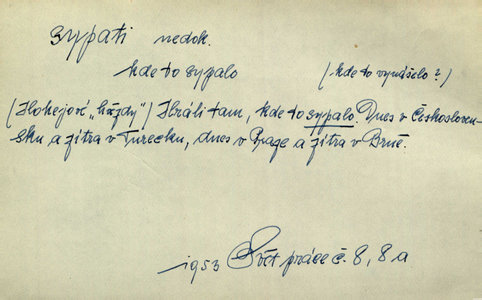 sypati nedok.
kde to sypalo (kde to vynášelo?)
(Hokejové „hvězdy") Hráli tam, kde to sypalo. Dnes v Českosloven-
sku a zítra v Turecku, dnes v Praze a zítra v Brně.
1953 Svět práce č. 8, 8a